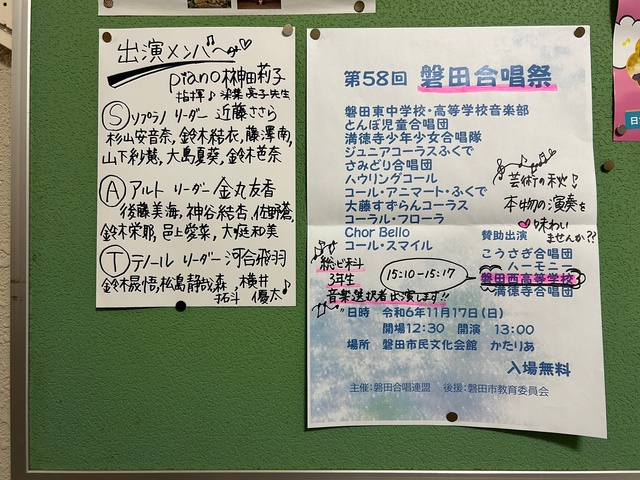 出演メンバ〜♪♡
piano 榊田莉子
指揮♪ 梁葉 亮子先生
Ⓢソプラノ リーダー 近藤ささら
杉山安音奈, 鈴木結衣, 藤澤南,
山下紗慧, 大島夏葵, 鈴木芭奈
Ⓐアルト リーダー 金丸友香
後藤美海, 神谷結杏, 佐野蒼
鈴木栄那, 邑上愛菜, 大庭和美
Ⓣテノール リーダー 河合飛羽
鈴木晟悟, 松島静哉, 森 拓斗, 横井 優太♪
第58回 磐田合唱祭
磐田東中学校・高等学校音楽部
とんぼ児童合唱団
溝徳寺少年少女合唱隊
ジュニアコーラスふくで
さみどり合唱団
ハウリングコール
コール・アニマート・ふくで
大藤すずらんコーラス
コーラル・フローラ
Chor Bello
コール・スマイル
芸術の秋♪
本物の演奏を
♡味わい
ませんか??
賛助出演
こうさぎ合唱団
ハーモニー
磐田西高等学校
溝徳寺合唱団
総ビ科
3年生
音楽選択者出演します!!
15:10-15:17
日時 令和6年11月17日(日)
開場12:30 開演 13:00
場所 磐田市民文化会館 かたりあ
入場無料
主催:磐田合唱連盟 後援:磐田市教育委員会